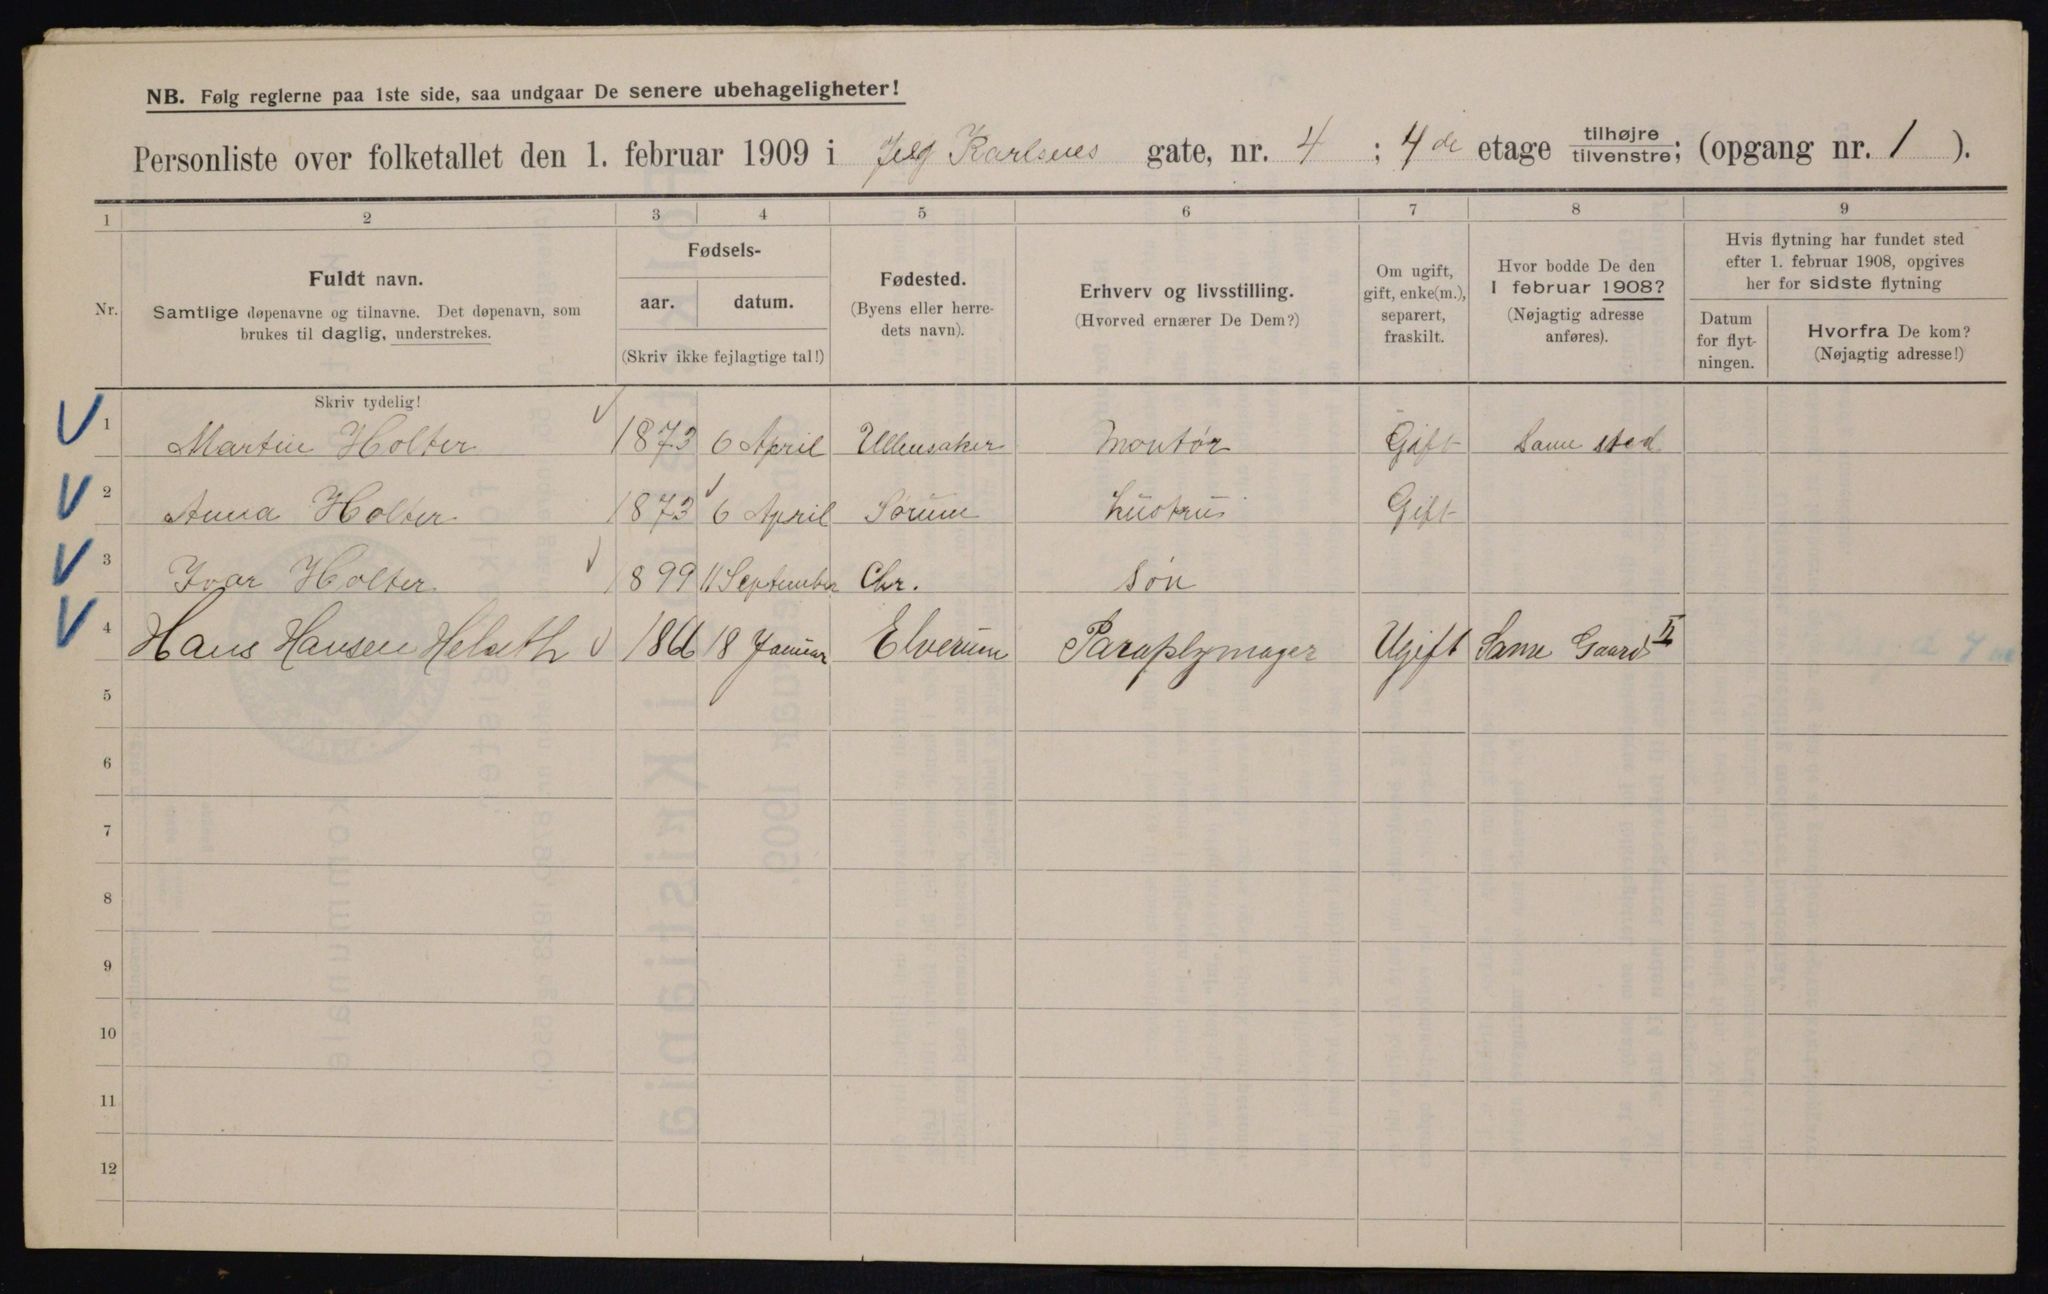 NB. Følg reglerne paa 1ste side, saa undgaar De senere ubehageligheter!
Personliste over folketallet den 1. februar 1909 i Karlsens gate, nr. 4 ; 4de etage tilhøjre/tilvenstre; (opgang nr. 1 ).
1 2 3 4 5 6 7 8 9
Nr.
Fuldt navn.
Samtlige døpenavne og tilnavne. Det døpenavn, som
brukes til daglig, understrekes.
Fødsels-
aar. datum.
(Skriv ikke fejlagtige tal!)
Fødested.
(Byens eller herre-
dets navn).
Erhverv og livsstilling.
(Hvorved ernærer De Dem?)
Om ugift,
gift, enke(m.),
separert,
fraskilt.
Hvor bodde De den
1 februar 1908?
(Nøjagtig adresse
anføres).
Hvis flytning har fundet sted
efter 1. februar 1908, opgives
her for sidste flytning
Datum
for flyt-
ningen.
Hvorfra De kom?
(Nøjagtig adresse!)
Skriv tydelig!
1 Martin Holter 1873 6 April Ullensaker Montør Gift Same sted
2 Anna Holter 1873 6 April Sørum Hustru Gift
3 Ivar Holter 1899 11 September Chr. Søn
4 Hans Hansen 18 Januar Elverum Paraplymager Ugift Same Gaard II
5
6
7
8
9
10
11
12